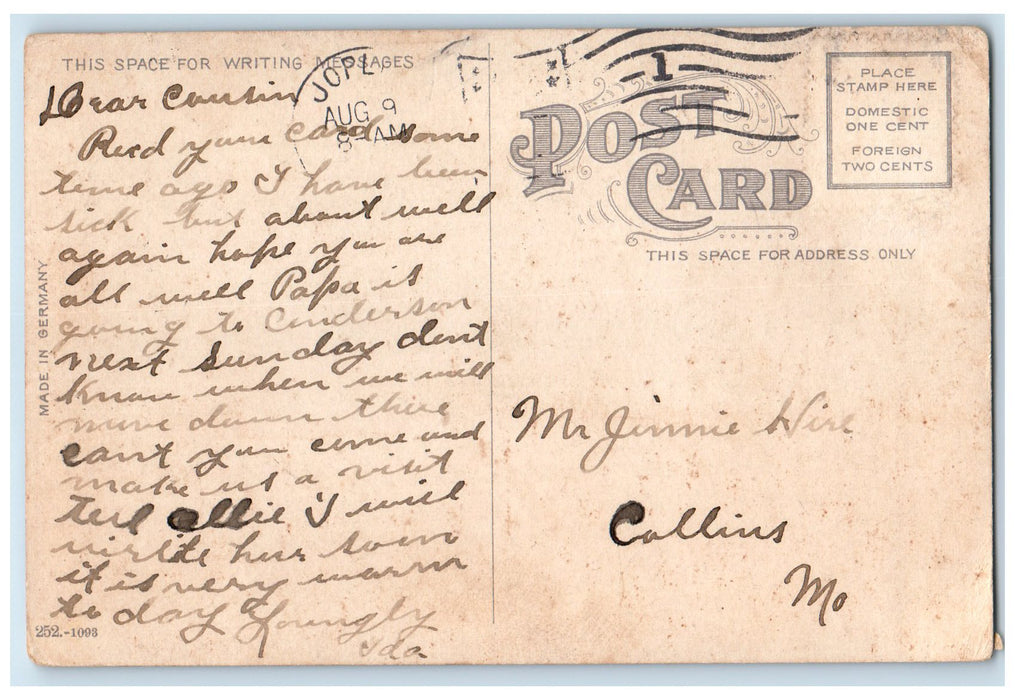 THIS SPACE FOR WRITING MESSAGES
Dear Cousin
Recd your card some
time ago I have been
sick but about well
again hope you are
all well Papa is
going to Anderson
next Sunday dont
know when we will
move down there
cant you come and
make us a visit
tell Ollie I will
write her soon
it is very warm
to day
Ida
252.-1093
MADE IN GERMANY
JOPL
AUG 9
8-AM
1
POST
CARD
PLACE
STAMP HERE
DOMESTIC
ONE CENT
FOREIGN
TWO CENTS
THIS SPACE FOR ADDRESS ONLY
Mr Jimmie Hire
Collins
Mo